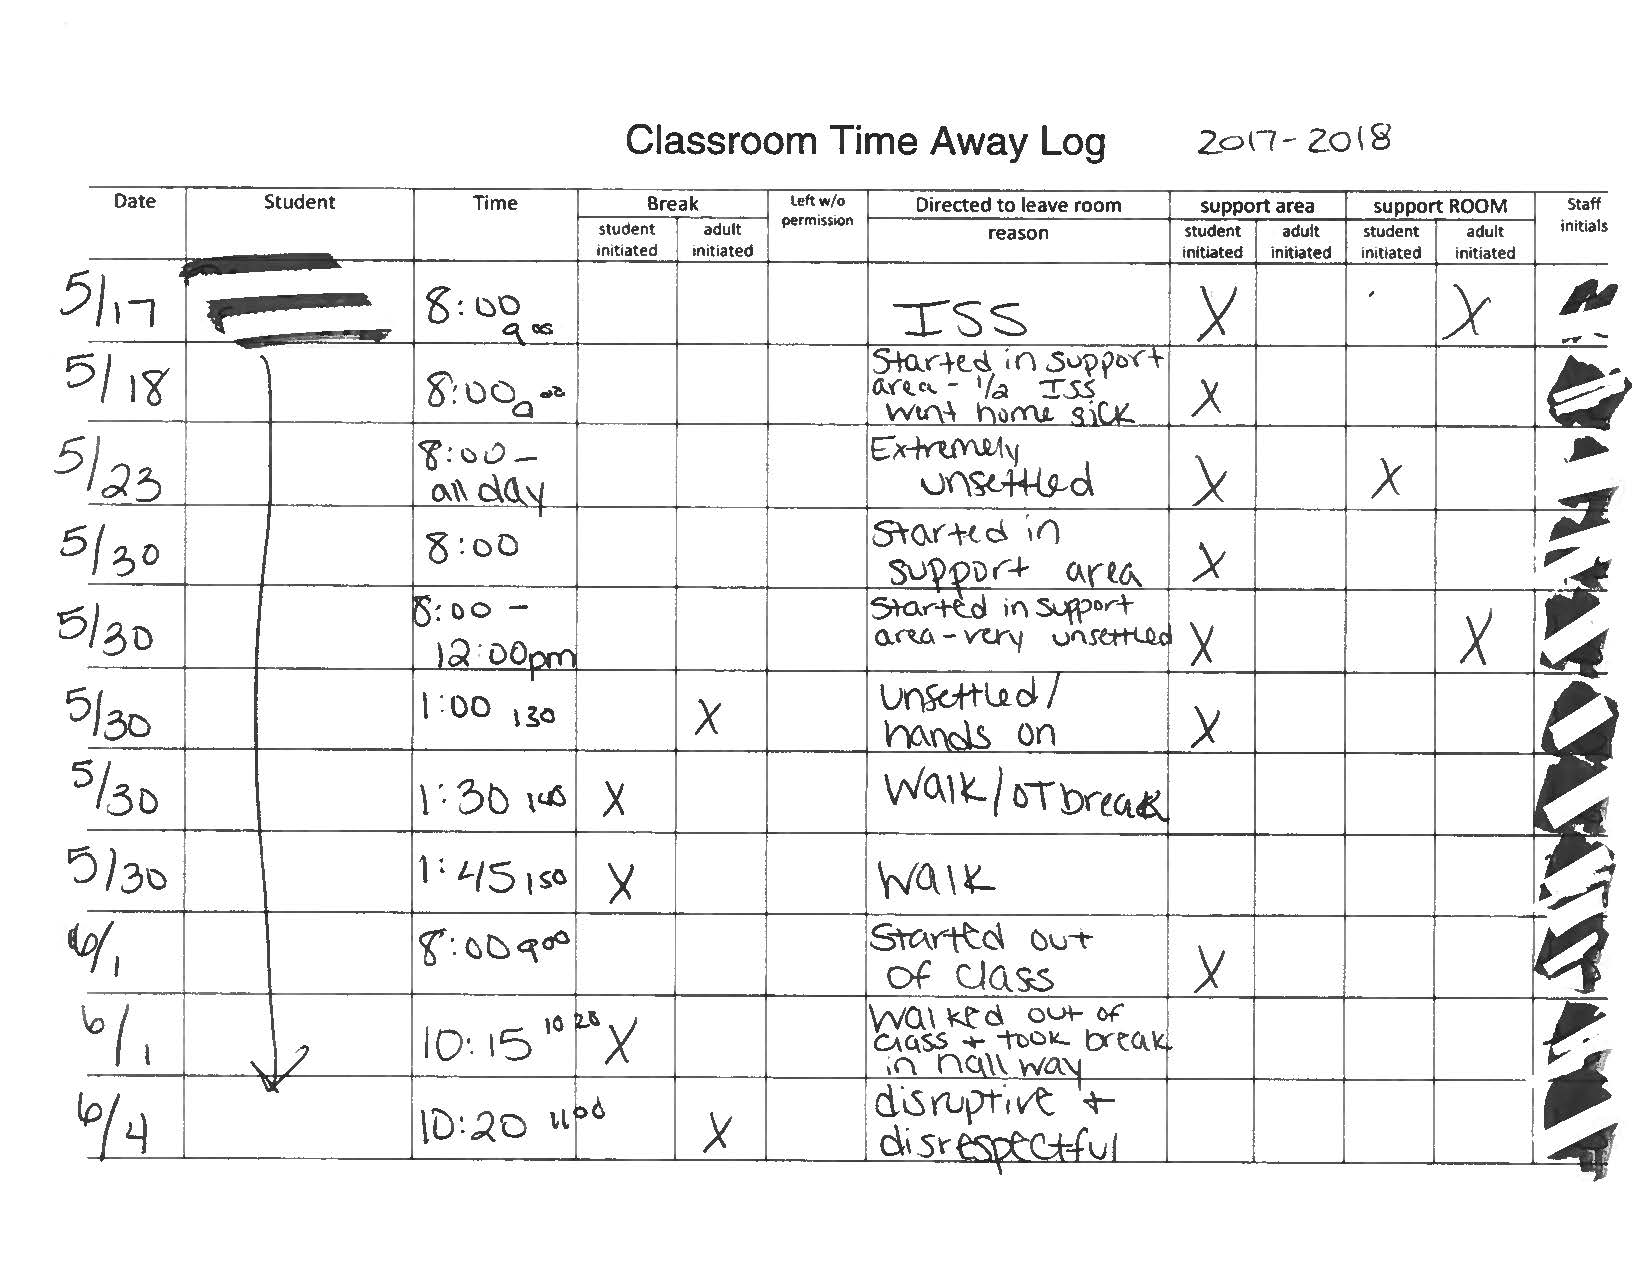 Classroom Time Away Log 2017-2018
Date Student Time Break Left w/o permission Directed to leave room support area support ROOM Staff initials
student initiated adult initiated reason student initiated adult initiated student initiated adult initiated
5/17 8:00 900 ISS X X
5/18 8:00 900 Started in support
area - 1/2 ISS
went home sick X
5/23 8:00 -
all day Extremely
unsettled X X
5/30 8:00 Started in
support area X
5/30 8:00 -
12:00pm Started in support
area - very unsettled X X
5/30 1:00 130 X unsettled/
hands on X
5/30 1:30 145 X Walk/OT break
5/30 1:45 150 X Walk
6/1 8:00 900 Started out
of class X
6/1 10:15 10 20 X Walked out of
class + took break
in hallway
6/4 10:20 1100 X disruptive +
disrespectful